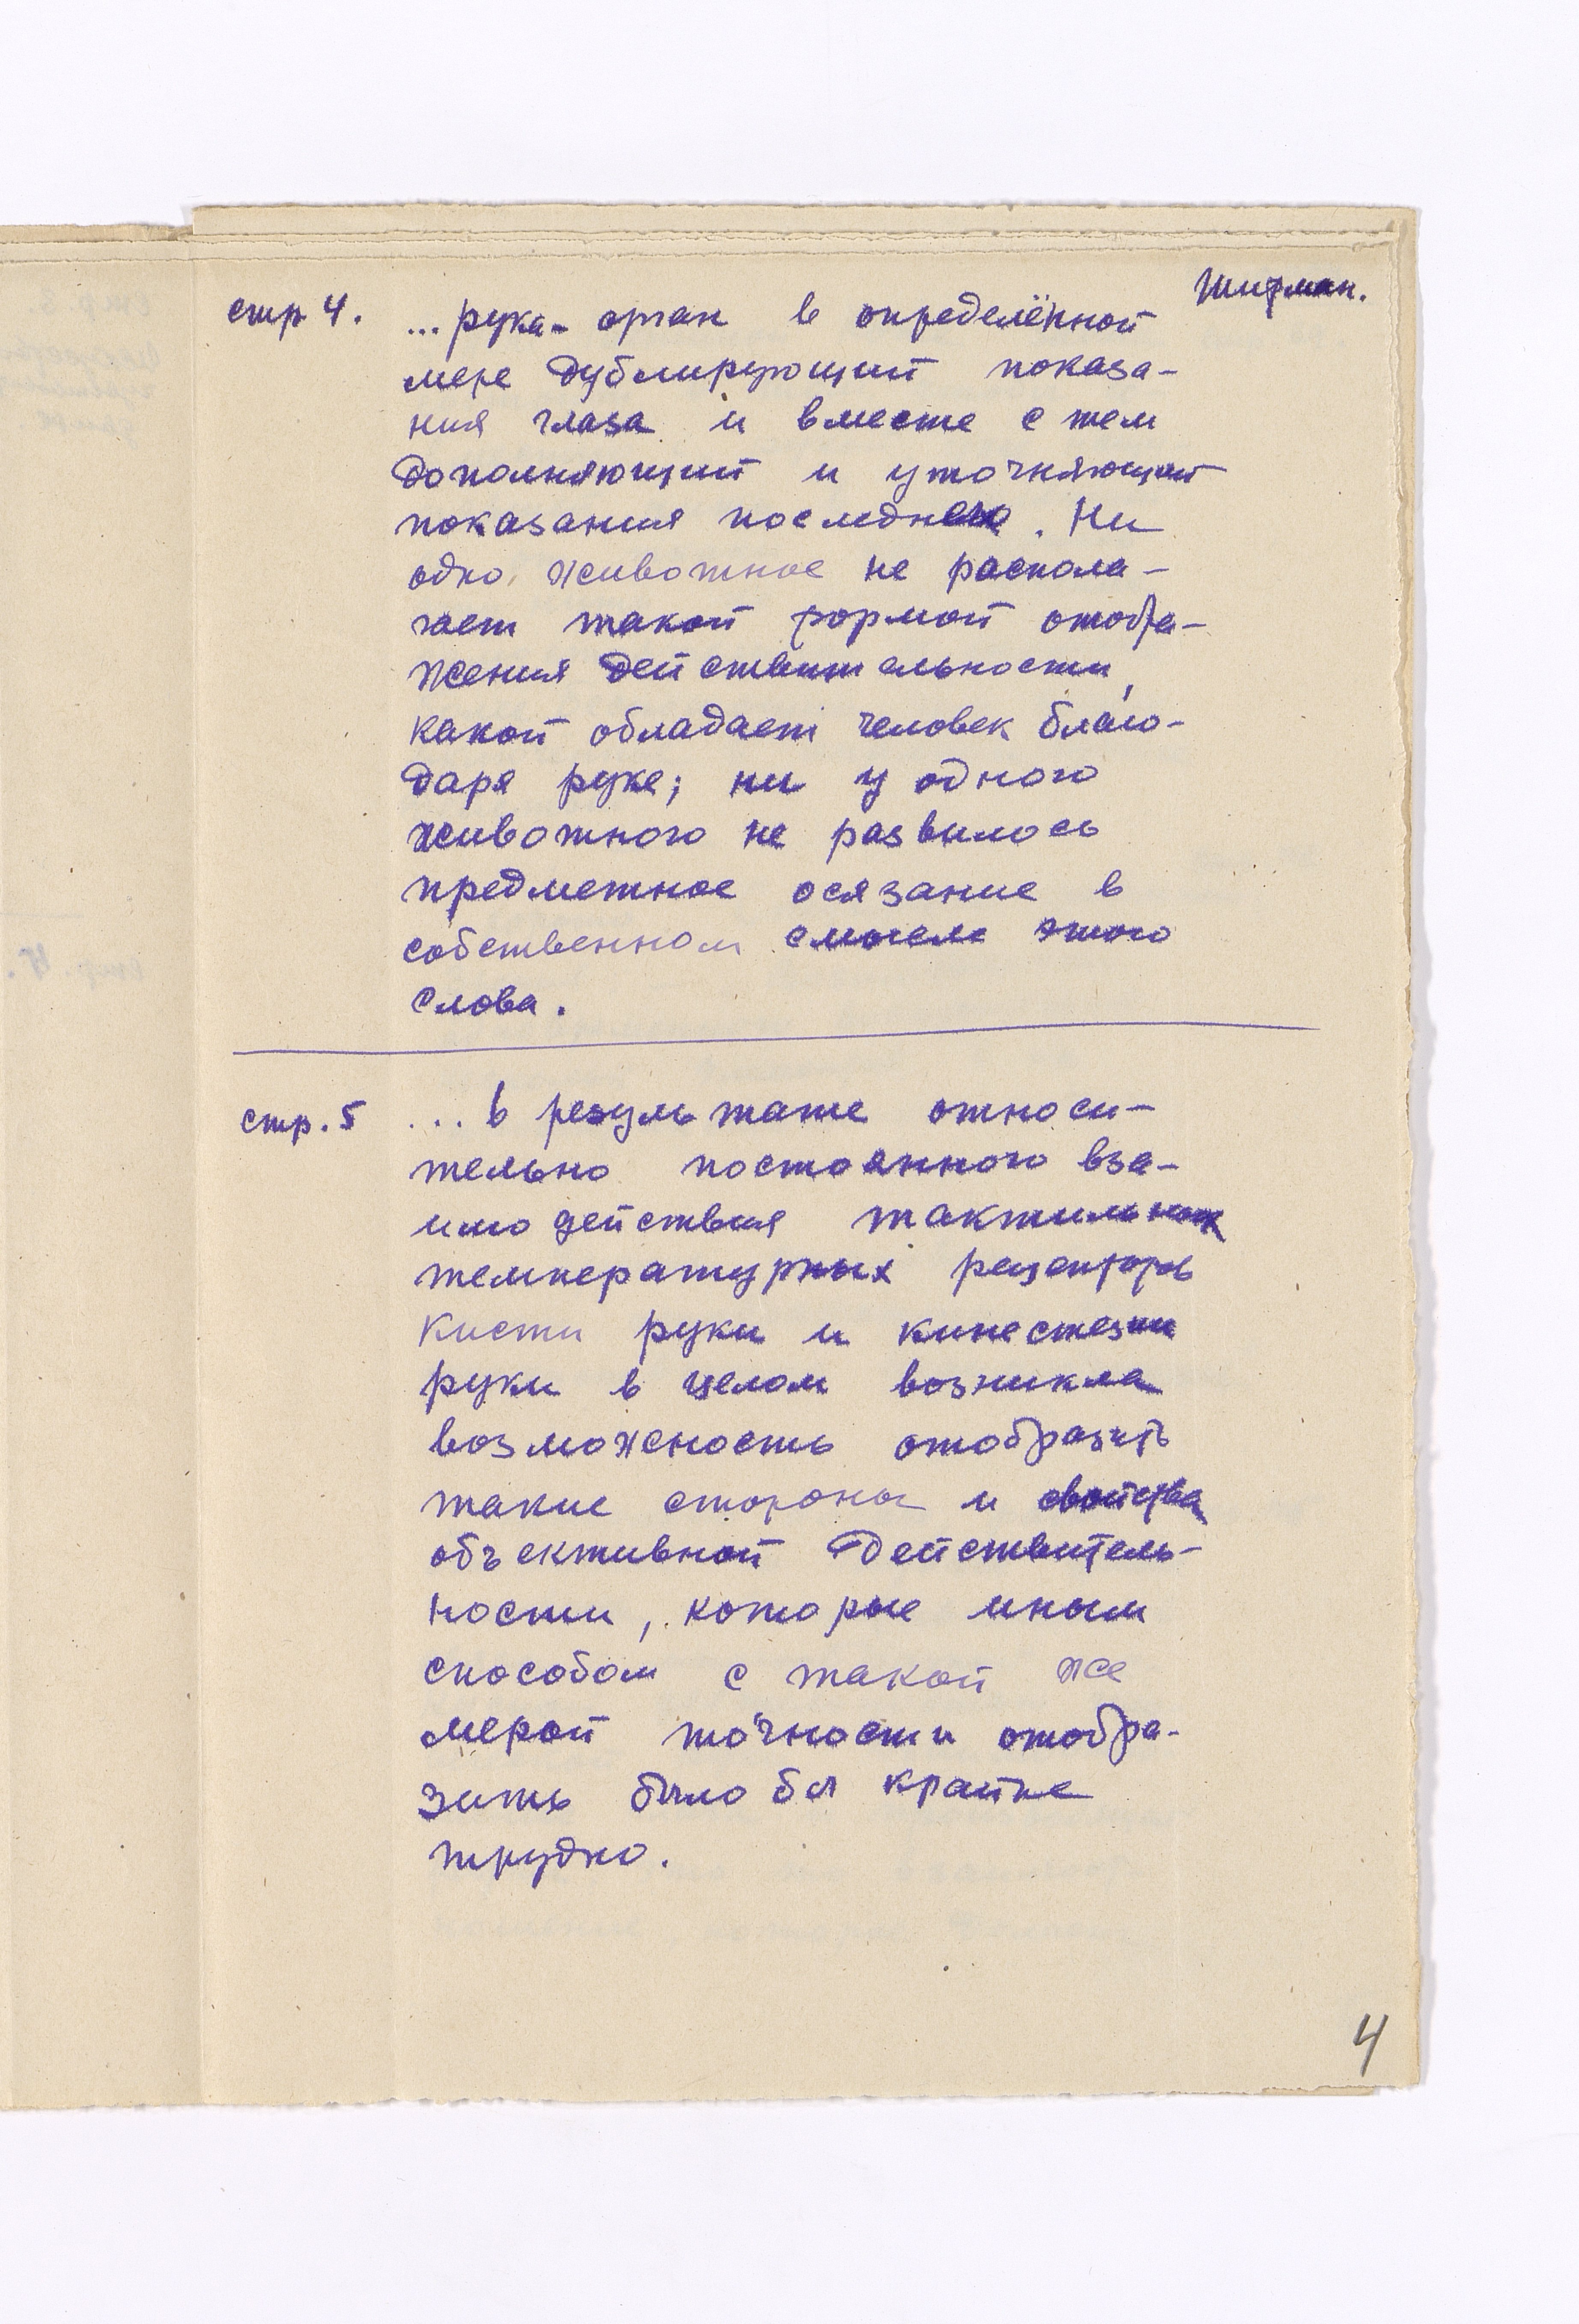 Шифман.
стр 4. ... рука - орган в определённой
мере дублирующий показа-
ния глаза и вместе с тем
дополняющий и уточняющий
показания последнего. Ни
одно животное не распола-
гает такой формой отобра-
жения действительности,
какой обладает человек благо-
даря руке; ни у одного
животного не развилось
предметное осязание в
собственном смысле этого
слова.
стр. 5 ... в результате относи-
тельно постоянного вза-
имодействия тактильных
температурных рецепторов
кисти руки и кинестезии
руки в целом возникла
возможность отобразить
такие стороны и свойства
объективной действитель-
ности, которые иным
способом с такой же
мерой точности отобра-
зить было бы крайне
трудно.
4